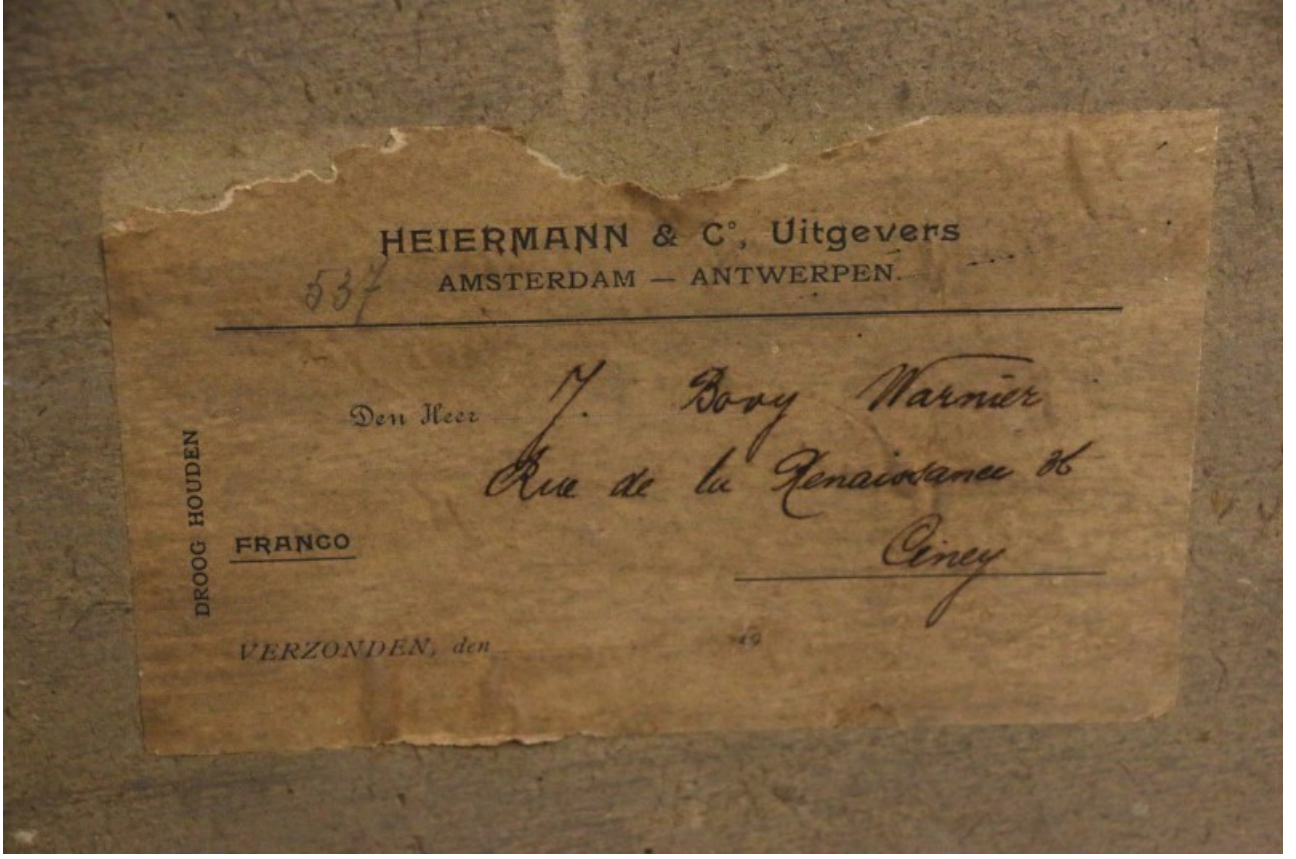 HEIERMANN & C°, Uitgevers
AMSTERDAM — ANTWERPEN.
537
Den Heer J. Bovy Warnier
Rue de la Renaissance 36
Ciney
DROOG HOUDEN
FRANCO
VERZONDEN, den 19